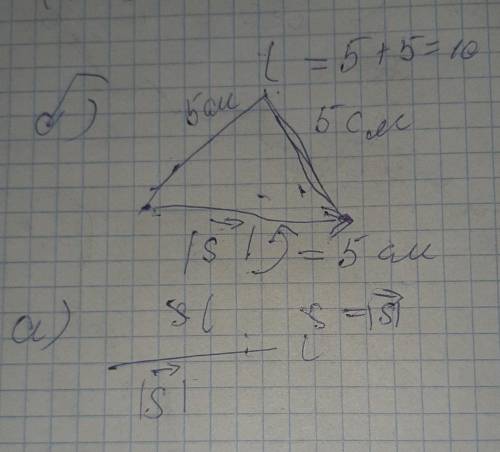 l = 5 + 5 = 10
б)
5 см
5 см
|s⃗| = 5 см
а)
s l
s = |s⃗|
l
|s⃗|